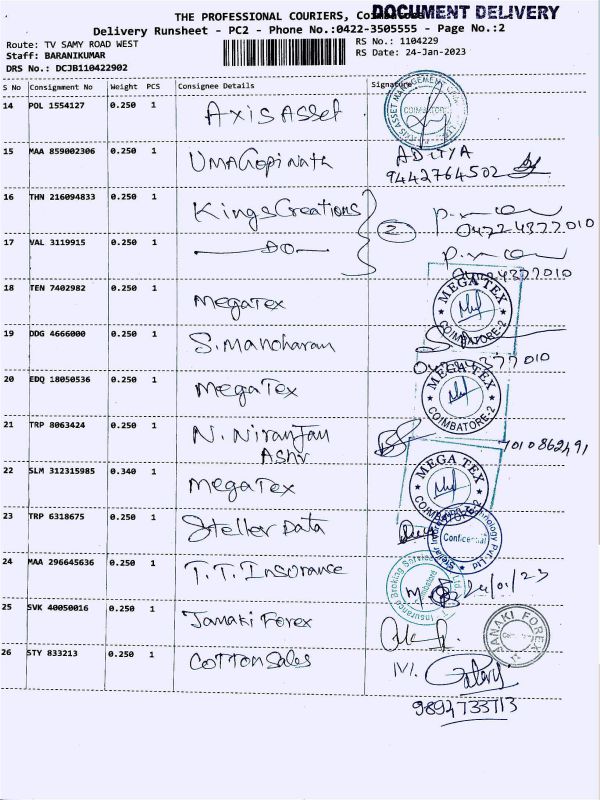 THE PROFESSIONAL COURIERS, Coimbatore
DOCUMENT DELIVERY
Delivery Runsheet - PC2 - Phone No.:0422-3505555 - Page No.:2
Route: TV SAMY ROAD WEST
RS No.: 1104229
Staff: BARANIKUMAR
RS Date: 24-Jan-2023
DRS No.: DCJB110422902
S No Consignment No Weight PCS Consignee Details Signature
14 POL 1554127 0.250 1 Axis Asset
COIMBATORE
15 MAA 859002306 0.250 1 UmaGopinath ADITYA
9442764502
16 THN 216094833 0.250 1 KingsCreations
2
04224377010
17 VAL 3119915 0.250 1 DO
04224377010
18 TEN 7402982 0.250 1 MegaTex
MEGA TEX
COIMBATORE-2
19 DDG 4666000 0.250 1 S. Manoharan
04224377010
20 EDQ 18050536 0.250 1 MegaTex
MEGA TEX
COIMBATORE-2
21 TRP 8063424 0.250 1 N. Niranjan
7010862491
22 SLM 312315985 0.340 1 MegaTex
MEGA TEX
COIMBATORE-2
23 TRP 6318675 0.250 1 Steller Data
Confidential
24 MAA 296645636 0.250 1 T.T. Insurance
Insurance Broking Services
Coimbatore
24/01/23
25 SVK 40050016 0.250 1 Janaki Forex
JANAKI FOREX
26 STY 833213 0.250 1 Cotton Sales
9894733713